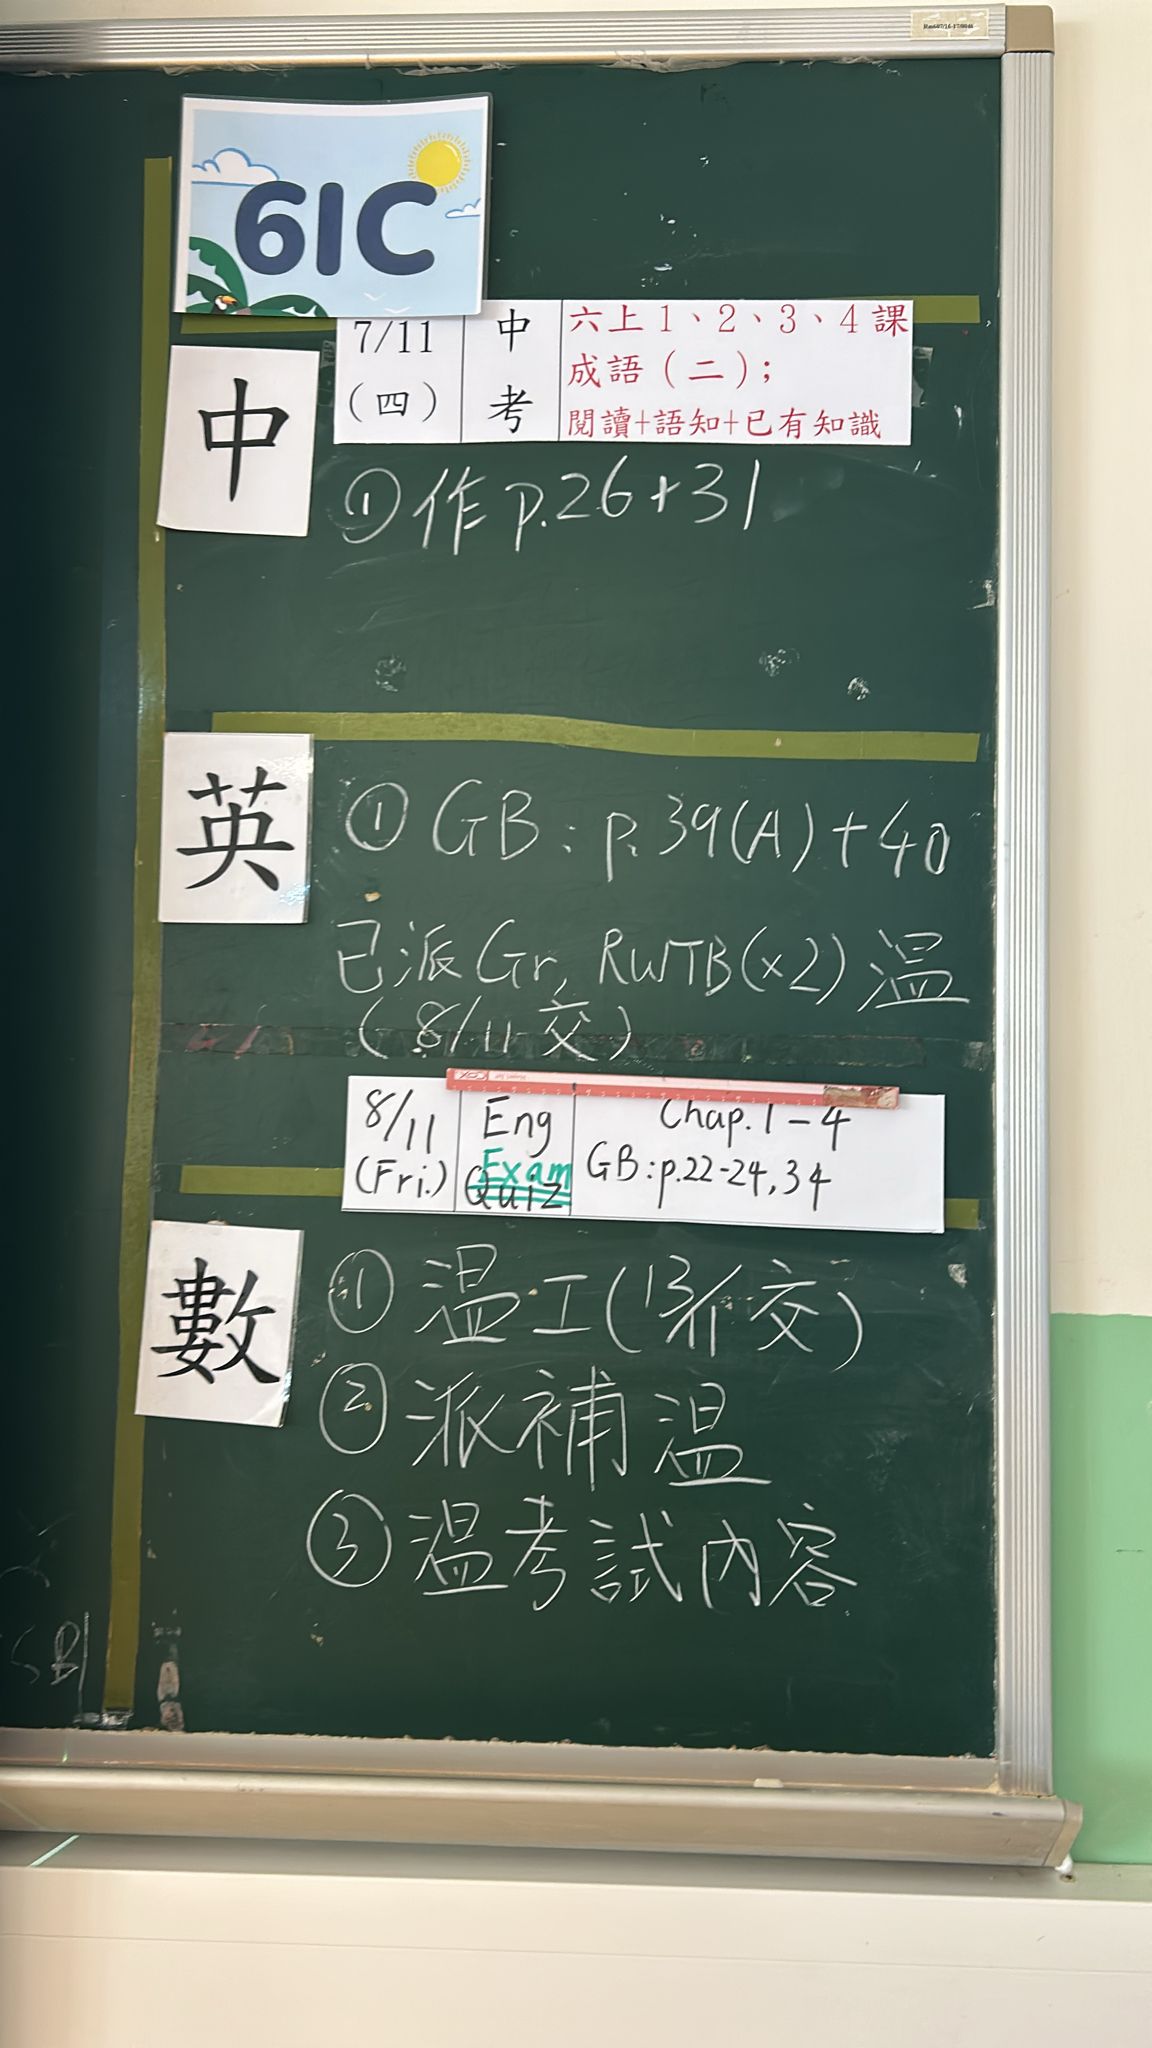 61C
7/11
(四)
中
考
六上1、2、3、4課
成語(二);
閱讀+語知+已有知識
中
① 作 p.26+31
英
① GB: p.39(A)+40
已派 Gr, RWTB(x2) 溫
(8/11 交)
8/11
(Fri.)
Eng
Exam
Quiz
Chap. 1-4
GB: p.22-24, 34
數
① 溫工(13/11交)
② 派補溫
③ 溫考試內容
SB